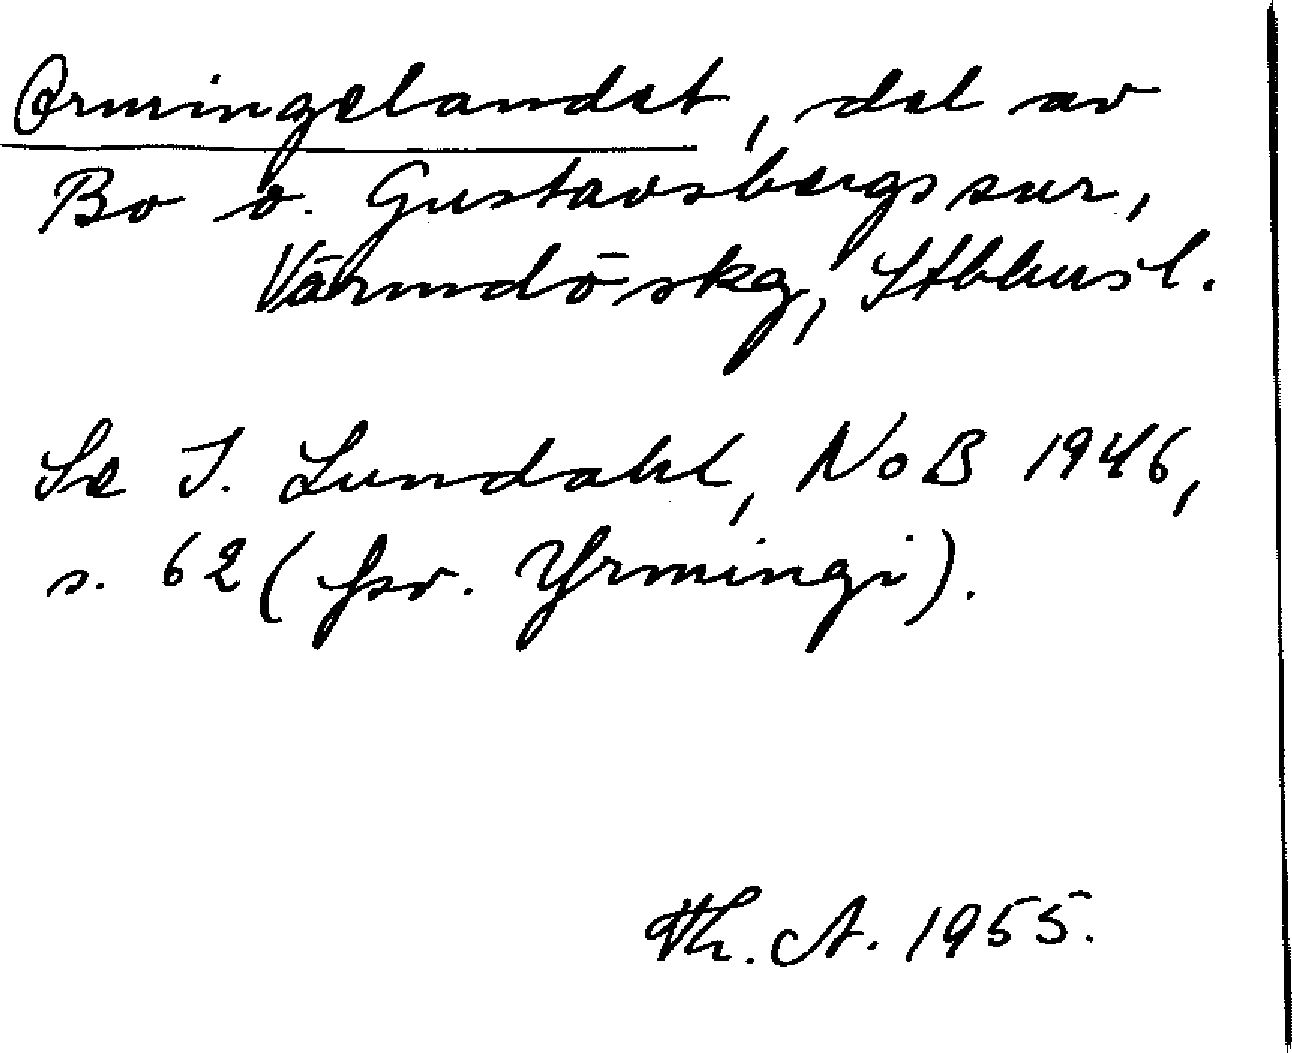 Ormingelandet, del av
Bo o. Gustavsbergs snr,
Värmdö skg, Sthlmsl.
Se I. Lundahl, NoB 1946,
s. 62 (fsv. Yrmingi).
Th. A. 1955.